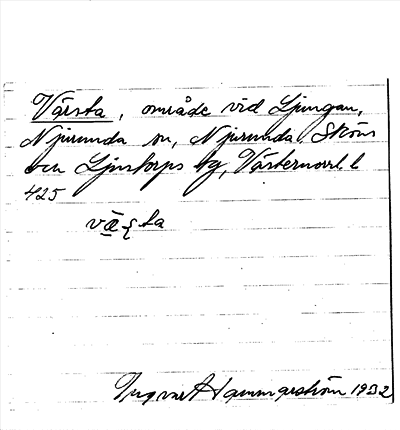 Värsta, område vid Ljungan,
Njurunda sn, Njurunda, Sköns
och Ljustorps tg, Västernorrl. l
425
väʂta
Ingvar Hammarström 1932